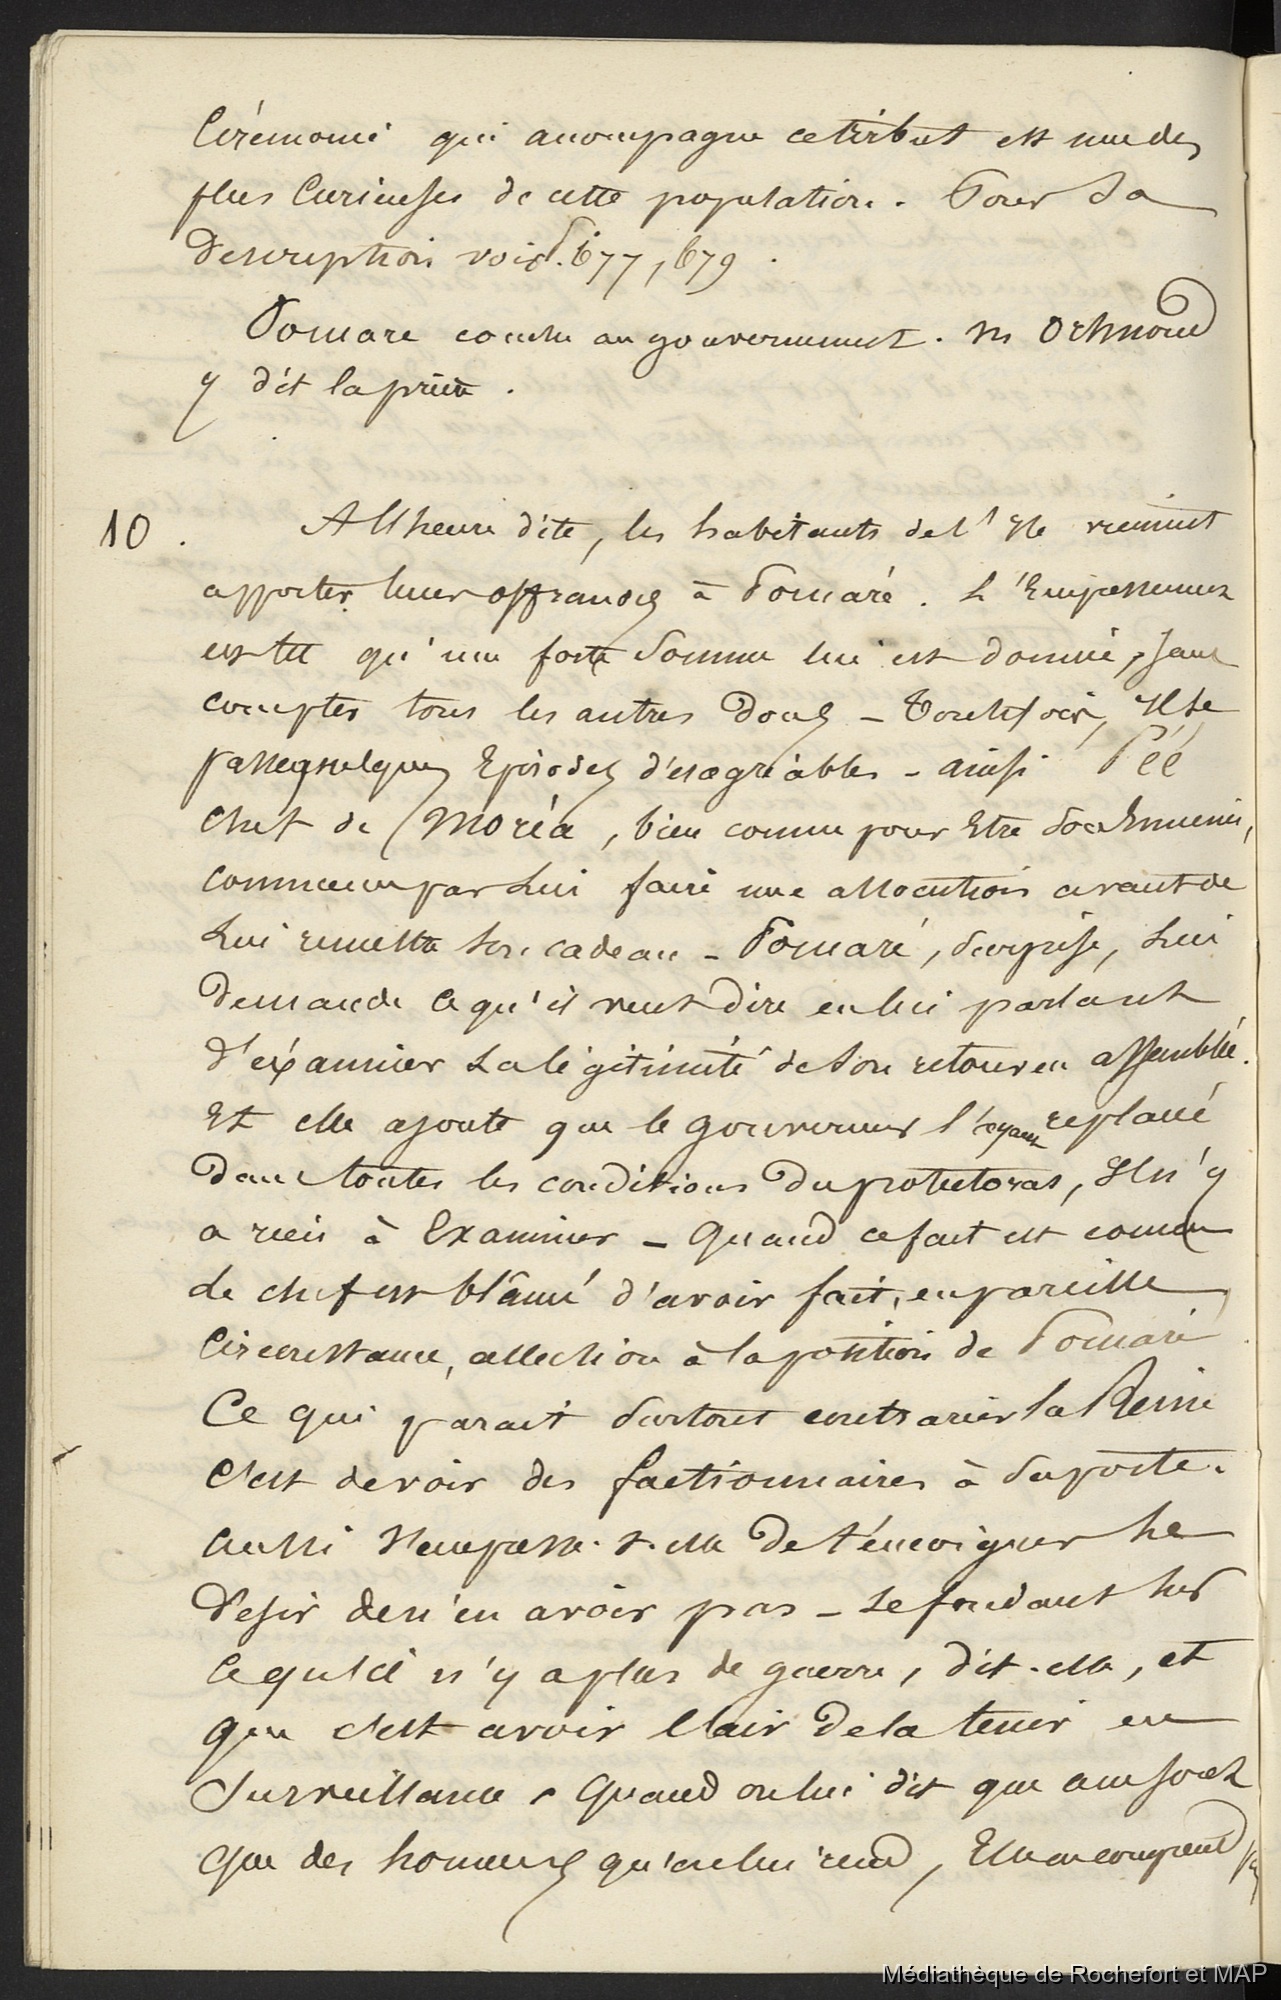 Cérémonie qui accompagne ce tribut est une des
plus Curieuses de cette population. Pour Sa
Description voir P. 677, 679.
Pomare couche au gouvernement. Mr Orsmond
y dit la prière.
10. A l'heure dite, les habitants de l'Ile viennent
apporter leurs offrandes à Pomaré. L'Empressement
est tel qu'une forte Somme lui est donnée, Sans
compter tous les autres Dons - Toutefois, Il se
passe quelques Episodes désagréables - ainsi Péé
Chef de Moréa, bien connu pour Etre
commence par Lui faire une allocution avant de
Lui remettre Son cadeau - Pomaré, Surprise, Lui
Demande Ce qu'il veut Dire en lui parlant
d'éxaminer La légitimité de Son retour en assemblée.
Et elle ajoute que le Gouverneur l'ayant replacé
Dans toutes les conditions Du protectorat, Il n'y
a rien à Examiner - Quand ce fait est connu
Le chef est blâmé d'avoir fait, en pareille
Circonstance, allection à la position de Pomaré
Ce qui parait Surtout contrarier la Reine
C'est de voir des factionnaires à Sa porte.
Aussi S'empresse-t-elle De témoigner Le
Désir de n'en avoir pas - Se fondant Sur
Ce qu'il n'y a plus de guerre, dit-elle, et
que c'est avoir l'air De la tenir en
Surveillance. Quand on lui dit que ce ne sont
que des honneurs qu'on lui rend, Elle ne comprend pas
Médiathèque de Rochefort et MAP